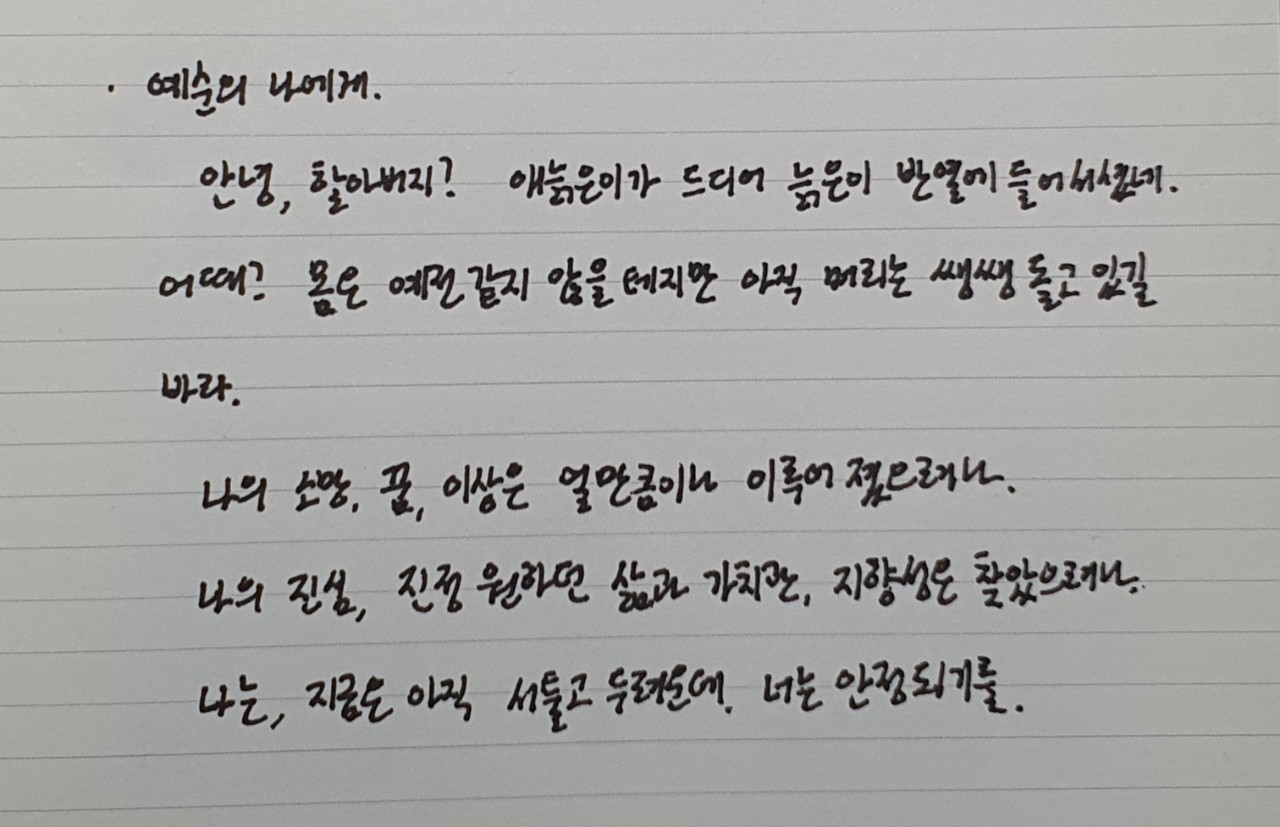 · 예순의 나에게.
안녕, 할아버지? 애늙은이가 드디어 늙은이 반열에 들어서셨네.
어때? 몸은 예전 같지 않을 테지만 아직 머리는 쌩쌩 돌고 있길
바라.
나의 소망, 꿈, 이상은 얼만큼이나 이루어 졌으려나.
나의 진심, 진정 원하던 삶과 가치관, 지향성은 찾았으려나.
나는, 지금은 아직 서툴고 두려운데, 너는 안정되기를.